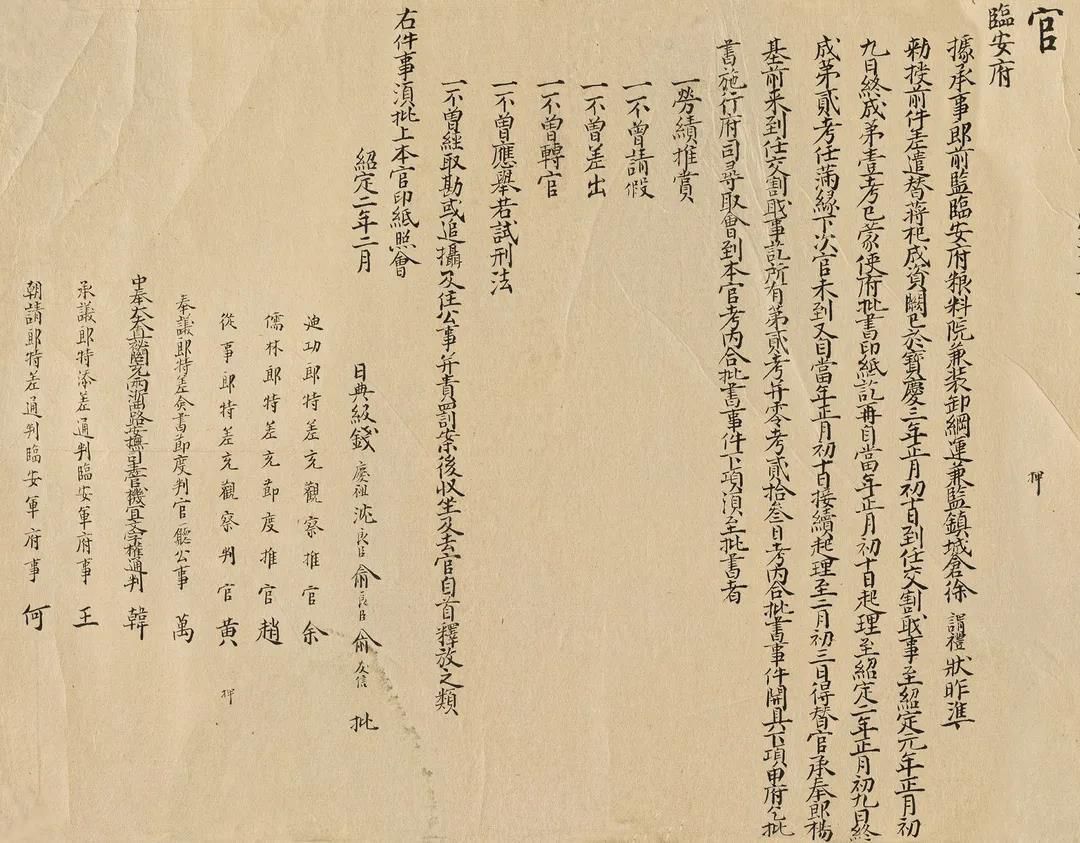 官
押
臨安府
據承事郎前監臨安府粮料院兼装卸綱運兼監鎮城倉徐謂禮狀昨准
勑授前件差遣替蔣杞成資闕已於寶慶三年正月初十日到任交割職事至紹定元年正月初
九日終成第壹考已蒙使府批書印紙訖再自當年正月初十日起理至紹定二年正月初九日終
成第貳考任滿緣下次官未到又自當年正月初十日接續起理至二月初三日得替官承奉郎楊
基前来到任交割職事訖所有第貳考并零考貳拾叁日考内合批書事件開具下項申府乞批
書施行府司尋取會到本官考内合批書事件下項須至批書者
一勞績推賞
一不曾請假
一不曾差出
一不曾轉官
一不曾應舉若試刑法
一不曾經取勘或追攝及住公事并責罰案後収坐及去官自首釋放之類
右件事須批上本官印紙照會
紹定二年二月 日典級錢慶祖沈良臣俞良臣俞友信批
迪功郎特差充觀察推官余
儒林郎特差充節度推官趙
從事郎特差充觀察判官黃 押
奉議郎特差僉書節度判官廳公事萬
中奉大夫直祕閣充兩浙路安撫司主管機宜文字權通判韓
承議郎特添差通判臨安軍府事王
朝請郎特差通判臨安軍府事何